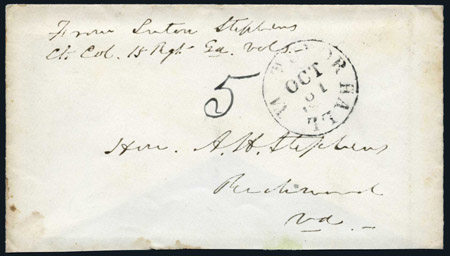 From Linton Stephens
Lt. Col. 15 Regt Ga. Vols.
5
OCT
Hon. A. H. Stephens
Richmond
Va.